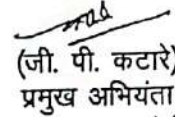 (जी. पी. कटारे)
प्रमुख अभियंता